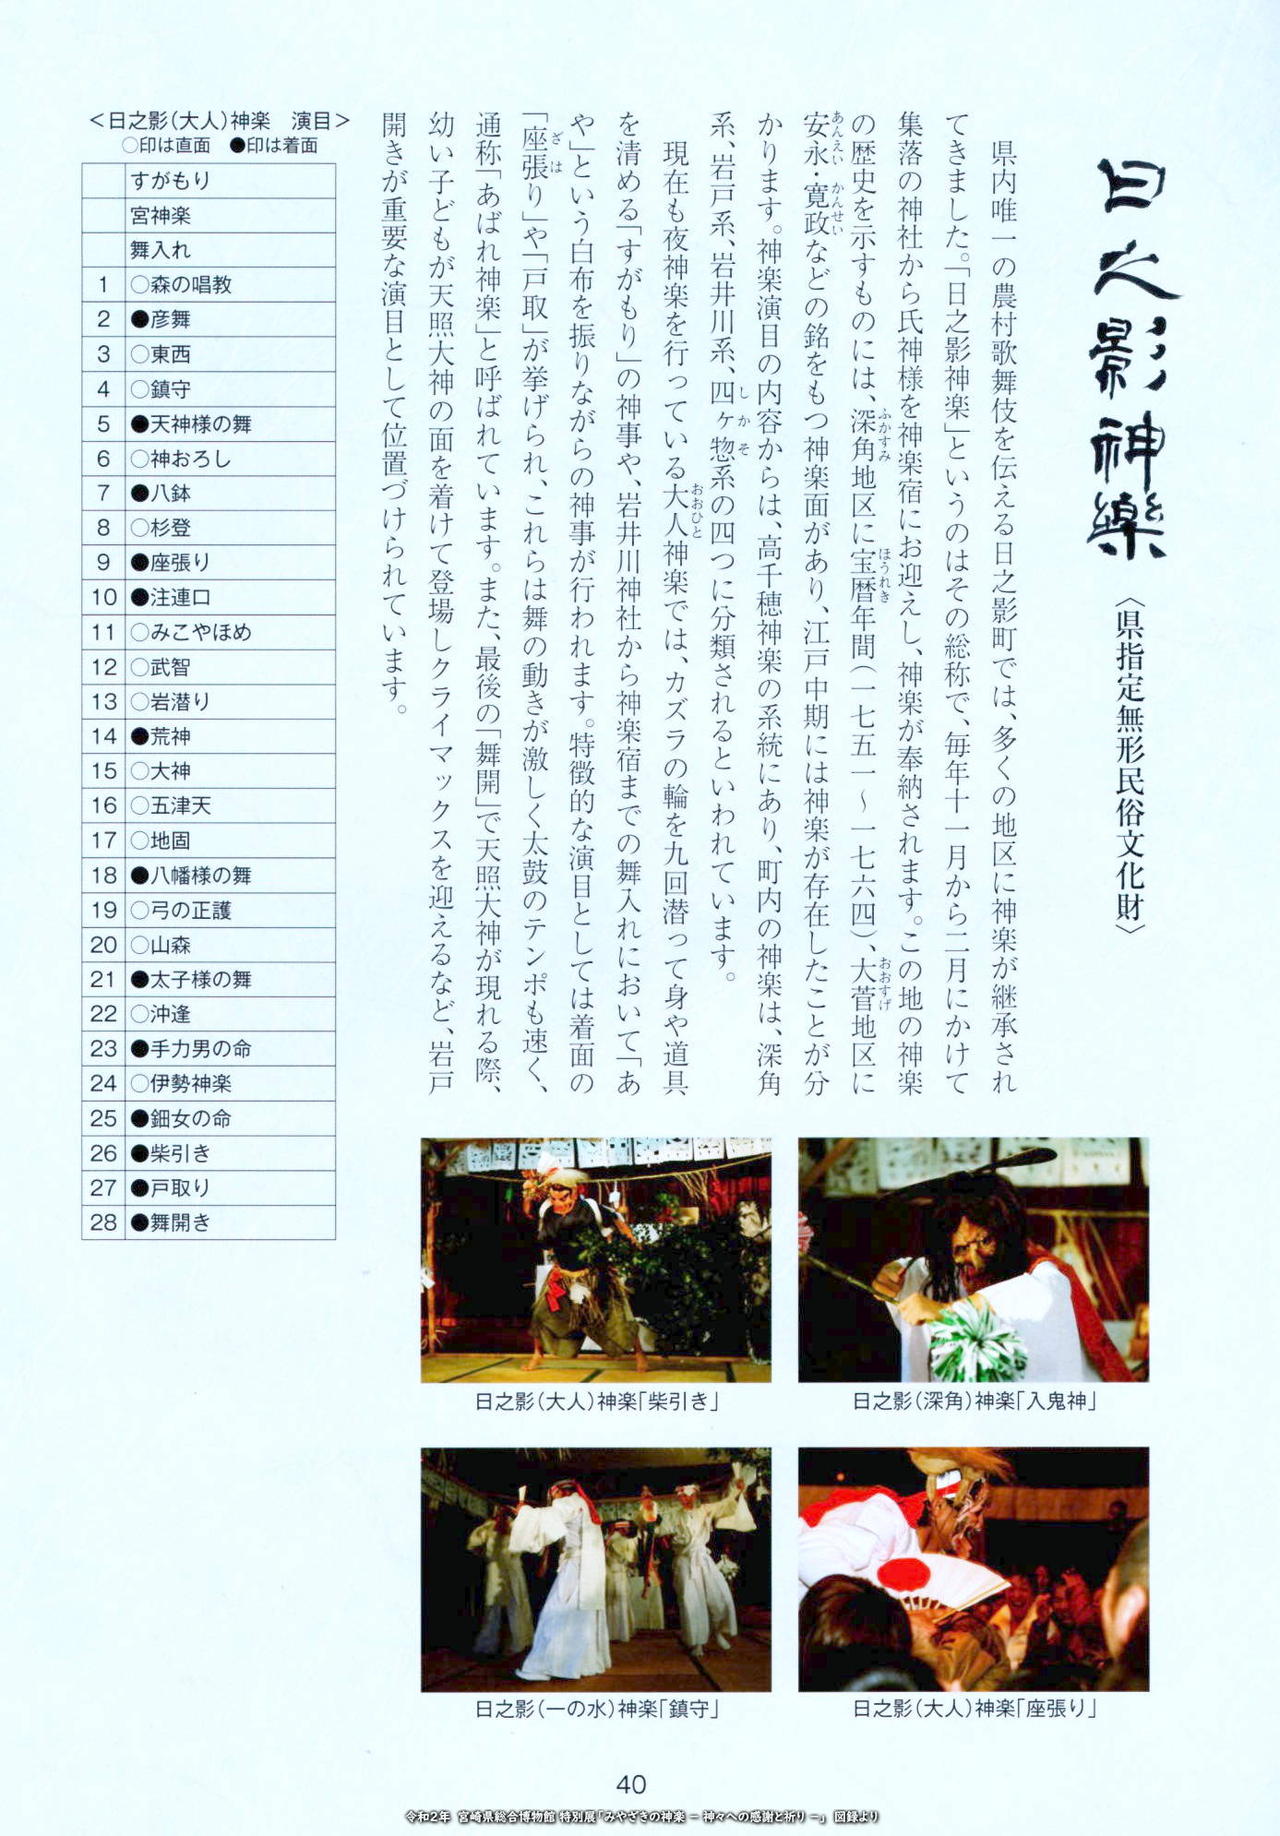 日之影神樂
〈県指定無形民俗文化財〉
県内唯一の農村歌舞伎を伝える日之影町では、多くの地区に神楽が継承され
てきました。「日之影神楽」というのはその総称で、毎年十一月から二月にかけて
集落の神社から氏神様を神楽宿にお迎えし、神楽が奉納されます。この地の神楽
の歴史を示すものには、深角地区に宝暦年間(一七五一～一七六四)、大菅地区に
ふかすみ
ほうれき
おおすげ
安永・寛政などの銘をもつ神楽面があり、江戸中期には神楽が存在したことが分
あんえい
かんせい
かります。神楽演目の内容からは、高千穂神楽の系統にあり、町内の神楽は、深角
系、岩戸系、岩井川系、四ヶ惣系の四つに分類されるといわれています。
しかそ
現在も夜神楽を行っている大人神楽では、カズラの輪を九回潜って身や道具
おおひと
を清める「すがもり」の神事や、岩井川神社から神楽宿までの舞入れにおいて「あ
や」という白布を振りながらの神事が行われます。特徴的な演目としては着面の
「座張り」や「戸取」が挙げられ、これらは舞の動きが激しく太鼓のテンポも速く、
ざは
通称「あばれ神楽」と呼ばれています。また、最後の「舞開」で天照大神が現れる際、
幼い子どもが天照大神の面を着けて登場しクライマックスを迎えるなど、岩戸
開きが重要な演目として位置づけられています。
＜日之影(大人)神楽　演目＞
○印は直面　●印は着面
すがもり
宮神楽
舞入れ
1 ○森の唱教
2 ●彦舞
3 ○東西
4 ○鎮守
5 ●天神様の舞
6 ○神おろし
7 ●八鉢
8 ○杉登
9 ●座張り
10 ●注連口
11 ○みこやほめ
12 ○武智
13 ○岩潜り
14 ●荒神
15 ○大神
16 ○五津天
17 ○地固
18 ●八幡様の舞
19 ○弓の正護
20 ○山森
21 ●太子様の舞
22 ○沖逢
23 ●手力男の命
24 ○伊勢神楽
25 ●鈿女の命
26 ●柴引き
27 ●戸取り
28 ●舞開き
日之影(大人)神楽「柴引き」
日之影(深角)神楽「入鬼神」
日之影(一の水)神楽「鎮守」
日之影(大人)神楽「座張り」
40
令和2年 宮崎県総合博物館 特別展「みやざきの神楽 － 神々への感謝と祈り －」 図録より